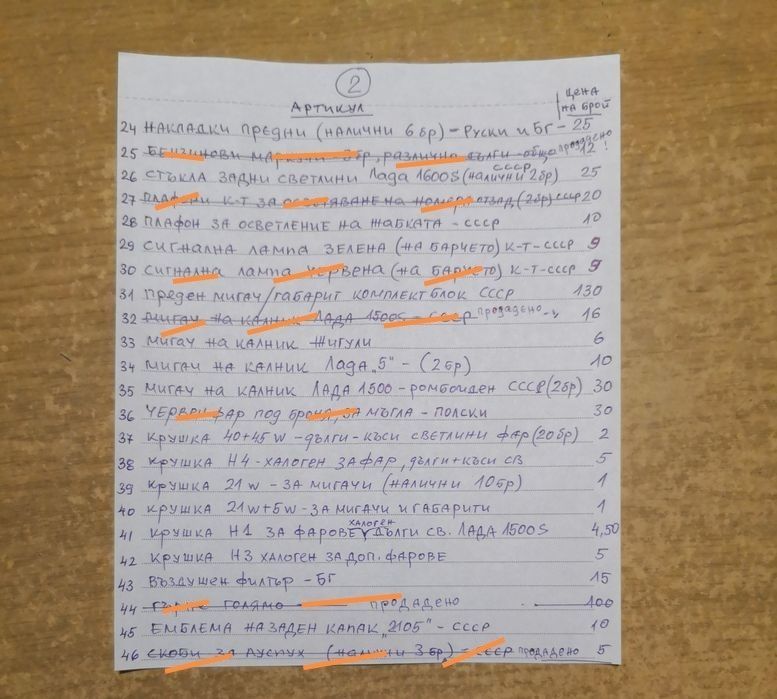 2
АРТИКУЛ
ЦЕНА НА БРОЙ
24 НАКЛАДКИ ПРЕДНИ (НАЛИЧНИ 6 бр) – РУСКИ И БГ – 25
25 БЕНЗИНОВИ МАРКУЧИ – 3бр, РАЗЛИЧНА ДЪЛГИ – общо продадено 12 !
26 СТЪКЛА ЗАДНИ СВЕТЛИНИ ЛАДА 1600S СССР (НАЛИЧНИ 2бр) 25
27 ПЛАФОНИ К-Т ЗА ОСВЕТЯВАНЕ НА НОМЕРА ОТЗАД (2бр) СССР 20
28 ПЛАФОН ЗА ОСВЕТЛЕНИЕ НА ЖАБКАТА – СССР 10
29 СИГНАЛНА ЛАМПА ЗЕЛЕНА (НА БАРЧЕТО) К-Т – СССР 9
30 СИГНАЛНА ЛАМПА ЧЕРВЕНА (НА БАРЧЕТО) К-Т – СССР 9
31 ПРЕДЕН МИГАЧ/ГАБАРИТ КОМПЛЕКТ БЛОК СССР 130
32 МИГАЧ НА КАЛНИК ЛАДА 1500S – СССР продадено 16
33 МИГАЧ НА КАЛНИК ЖИГУЛИ 6
34 МИГАЧ НА КАЛНИК ЛАДА „5" – (2бр) 10
35 МИГАЧ НА КАЛНИК ЛАДА 1500 – РОМБОИДЕН СССР (2бр) 30
36 ФАР ПОД БРОНЯ, ЗА МЪГЛА – ПОЛСКИ 30
37 КРУШКА 40+45W – ДЪЛГИ – КЪСИ СВЕТЛИНИ ФАР (20бр) 2
38 КРУШКА H4 – ХАЛОГЕН ЗА ФАР, ДЪЛГИ + КЪСИ СВ 5
39 КРУШКА 21W – ЗА МИГАЧИ (НАЛИЧНИ 10бр) 1
40 КРУШКА 21W+5W – ЗА МИГАЧИ И ГАБАРИТИ 1
41 КРУШКА H1 ЗА ФАРОВЕ ХАЛОГЕН ДЪЛГИ СВ. ЛАДА 1500S 4,50
42 КРУШКА H3 ХАЛОГЕН ЗА ДОП. ФАРОВЕ 5
43 ВЪЗДУШЕН ФИЛТЪР – БГ 15
44 ГЪРНЕ ГОЛЯМО продадено 100
45 ЕМБЛЕМА НА ЗАДЕН КАПАК „2105" – СССР 10
46 СКОБИ ЗА АУСПУХ (НАЛИЧНИ 3бр) – СССР продадено 5